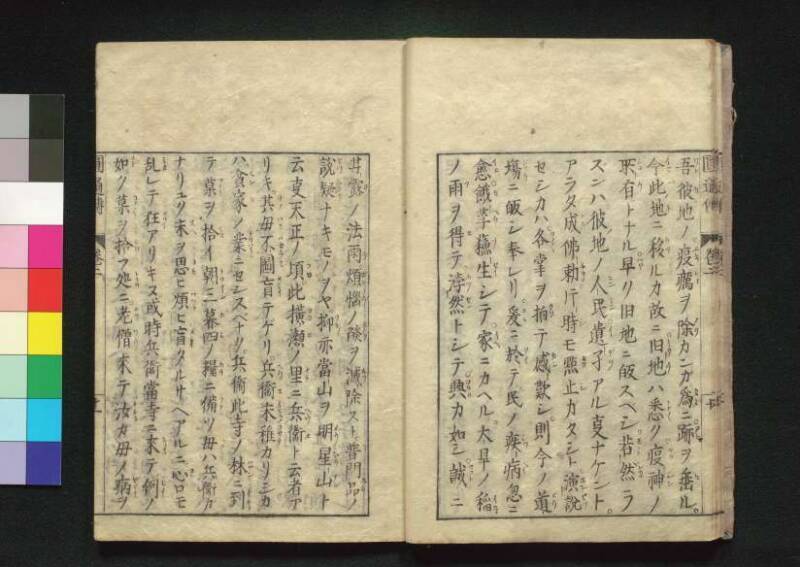 吾彼地ノ疫癘ヲ除カンガ為ニ跡ヲ垂ル。
今此地ニ移ルカ故ニ旧地ハ悉ク疫神ノ
所有トナル早ク旧地ニ皈スベシ若然ラ
ズンハ彼地ノ人民遺孑アル㕝ナケント。
アラタ成佛勅片時モ黙止カタシト演説
セシカハ各掌ヲ拍テ感歎シ則今ノ道
場ニ皈シ奉レリ爰ニ於テ民ノ疾病忽ニ
愈餓莩蘓生シテ家ニカヘル大旱ノ稲
ノ雨ヲ得テ浡然トシテ興カ如シ誠ニ
甘露ノ法雨煩悩ノ𦦨ヲ滅除スト普門品ノ
説疑ナキモノヲヤ抑亦當山ヲ明星山ト
云㕝天正ノ頃此横瀬ノ里ニ兵衛ト云者ア
リキ其母不圖盲テケリ兵衛未稚カリシカ
ハ貧家ノ業ニセンスベナク兵衛此寺ノ林ニ到
テ菓ヲ拾イ朝三暮四ノ糧ニ備ツ母ハ兵衛カ
ナリユク末ヲ思ヒ煩ヒ盲タルサヘアルニ心ロモ
乱レテ狂アリキヌ或時兵衛當寺ニ来テ例ノ
如ク菓ヲ拾フ処ニ老僧来テ汝カ母ノ病ヲ
圓通傳
巻二